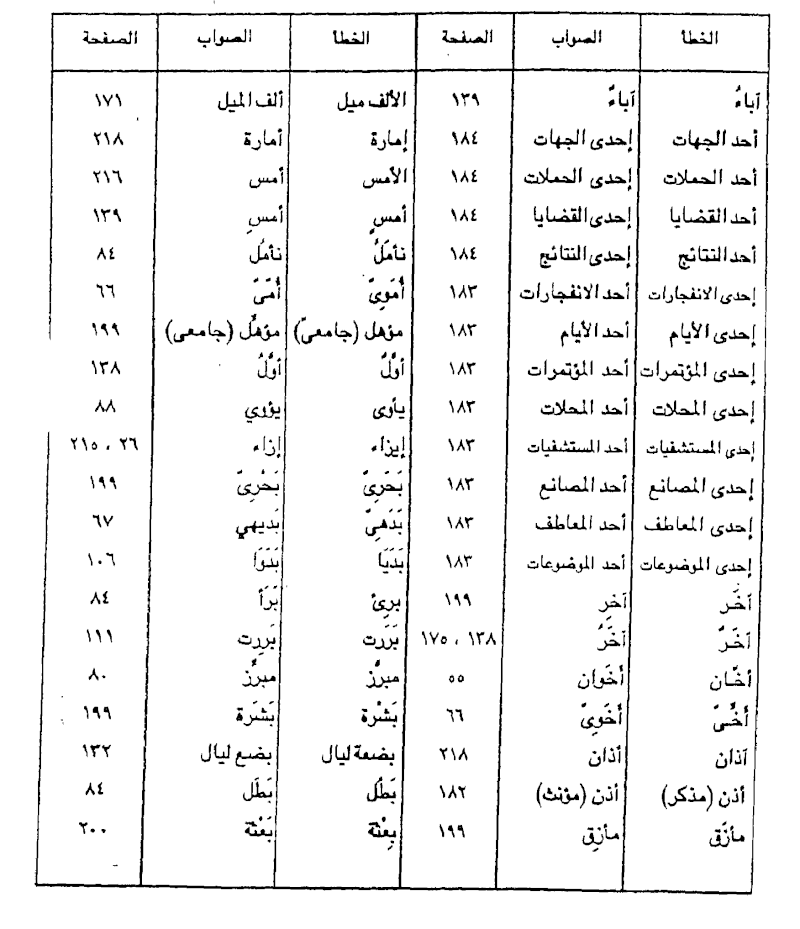 الخطأ الصواب الصفحة الخطأ الصواب الصفحة
آباءُ آباءٌ ١٣٩ الألف ميل ألف الميل ١٧١
أحد الجهات إحدى الجهات ١٨٤ إمارة أمارة ٢١٨
أحد الحملات إحدى الحملات ١٨٤ الأمس أمس ٢١٦
أحد القضايا إحدى القضايا ١٨٤ أمسٍ أمسِ ١٣٩
أحد النتائج إحدى النتائج ١٨٤ نأمَلُ نأمُل ٨٤
إحدى الانفجارات أحد الانفجارات ١٨٣ أُمَوِىّ أُمّىّ ٦٦
إحدى الأيام أحد الأيام ١٨٣ مؤهل (جامعىّ) مؤهِّل (جامعى) ١٩٩
إحدى المؤتمرات أحد المؤتمرات ١٨٣ أوَّلٌ أوَّلُ ١٣٨
إحدى المحلات أحد المحلات ١٨٣ يأوى يؤوي ٨٨
إحدى المستشفيات أحد المستشفيات ١٨٣ إيزاء إزاء ٢٦ ، ٢١٥
إحدى المصانع أحد المصانع ١٨٣ بَحَرِىّ بَحْرِىّ ١٩٩
إحدى المعاطف أحد المعاطف ١٨٣ بَدَهِىّ بَديهي ٦٧
إحدى الموضوعات أحد الموضوعات ١٨٣ بَدَيَا بَدَوَا ١٠٦
آخَر آخِر ١٩٩ برِئ بَرَأ ٨٤
آخَرٌ آخَرُ ١٣٨ ، ١٧٥ بَرَرت بَرِرت ١١١
أخَّان أخَوان ٥٥ مبرَّز مبرِّز ٨٠
أَخِّىّ أَخَوِىّ ٦٦ بَشْرة بَشَرة ١٩٩
آذان أذان ٢١٨ بضعة ليال بضع ليال ١٣٢
أذن (مذكر) أذن (مؤنث) ١٨٢ بَطُل بَطَل ٨٤
مأزَق مأزِق ١٩٩ بِعْثة بَعْثة ٢٠٠